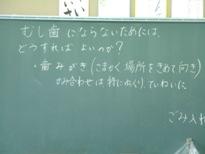 むし歯にならないためには、
どうすれば よいのか？
・歯みがき（こまかく 場所をきめて 向き）
かみ合わせは 特にねらい、ていねいに
ごみ入れ